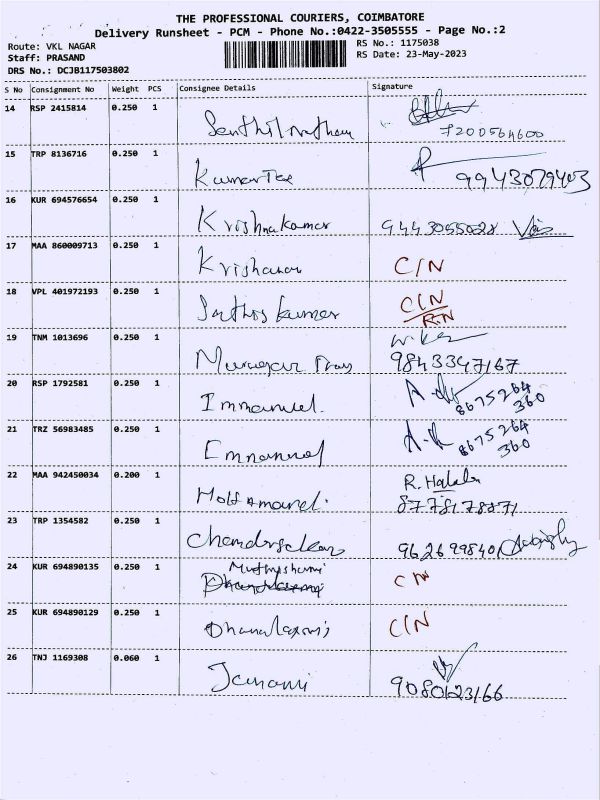 THE PROFESSIONAL COURIERS, COIMBATORE
Delivery Runsheet - PCM - Phone No.:0422-3505555 - Page No.:2
Route: VKL NAGAR RS No.: 1175038
Staff: PRASAND RS Date: 23-May-2023
DRS No.: DCJB117503802
S No Consignment No Weight PCS Consignee Details Signature
14 RSP 2415814 0.250 1 Senthilnathan
7200564600
15 TRP 8136716 0.250 1 9943079403
16 KUR 694576654 0.250 1 Krishnakumar 9443055028
17 MAA 860009713 0.250 1 C/N
18 VPL 401972193 0.250 1 kumar C/N
R.N
19 TNM 1013696 0.250 1 9843347167
20 RSP 1792581 0.250 1 Immanuel. 8675264
360
21 TRZ 56983485 0.250 1 Emnanuel 8675264
360
22 MAA 942450034 0.200 1 R.
8778178871
23 TRP 1354582 0.250 1 9626998401
24 KUR 694890135 0.250 1 C/N
25 KUR 694890129 0.250 1 Dhanalaxmi C/N
26 TNJ 1169308 0.060 1 Janani
9080123166